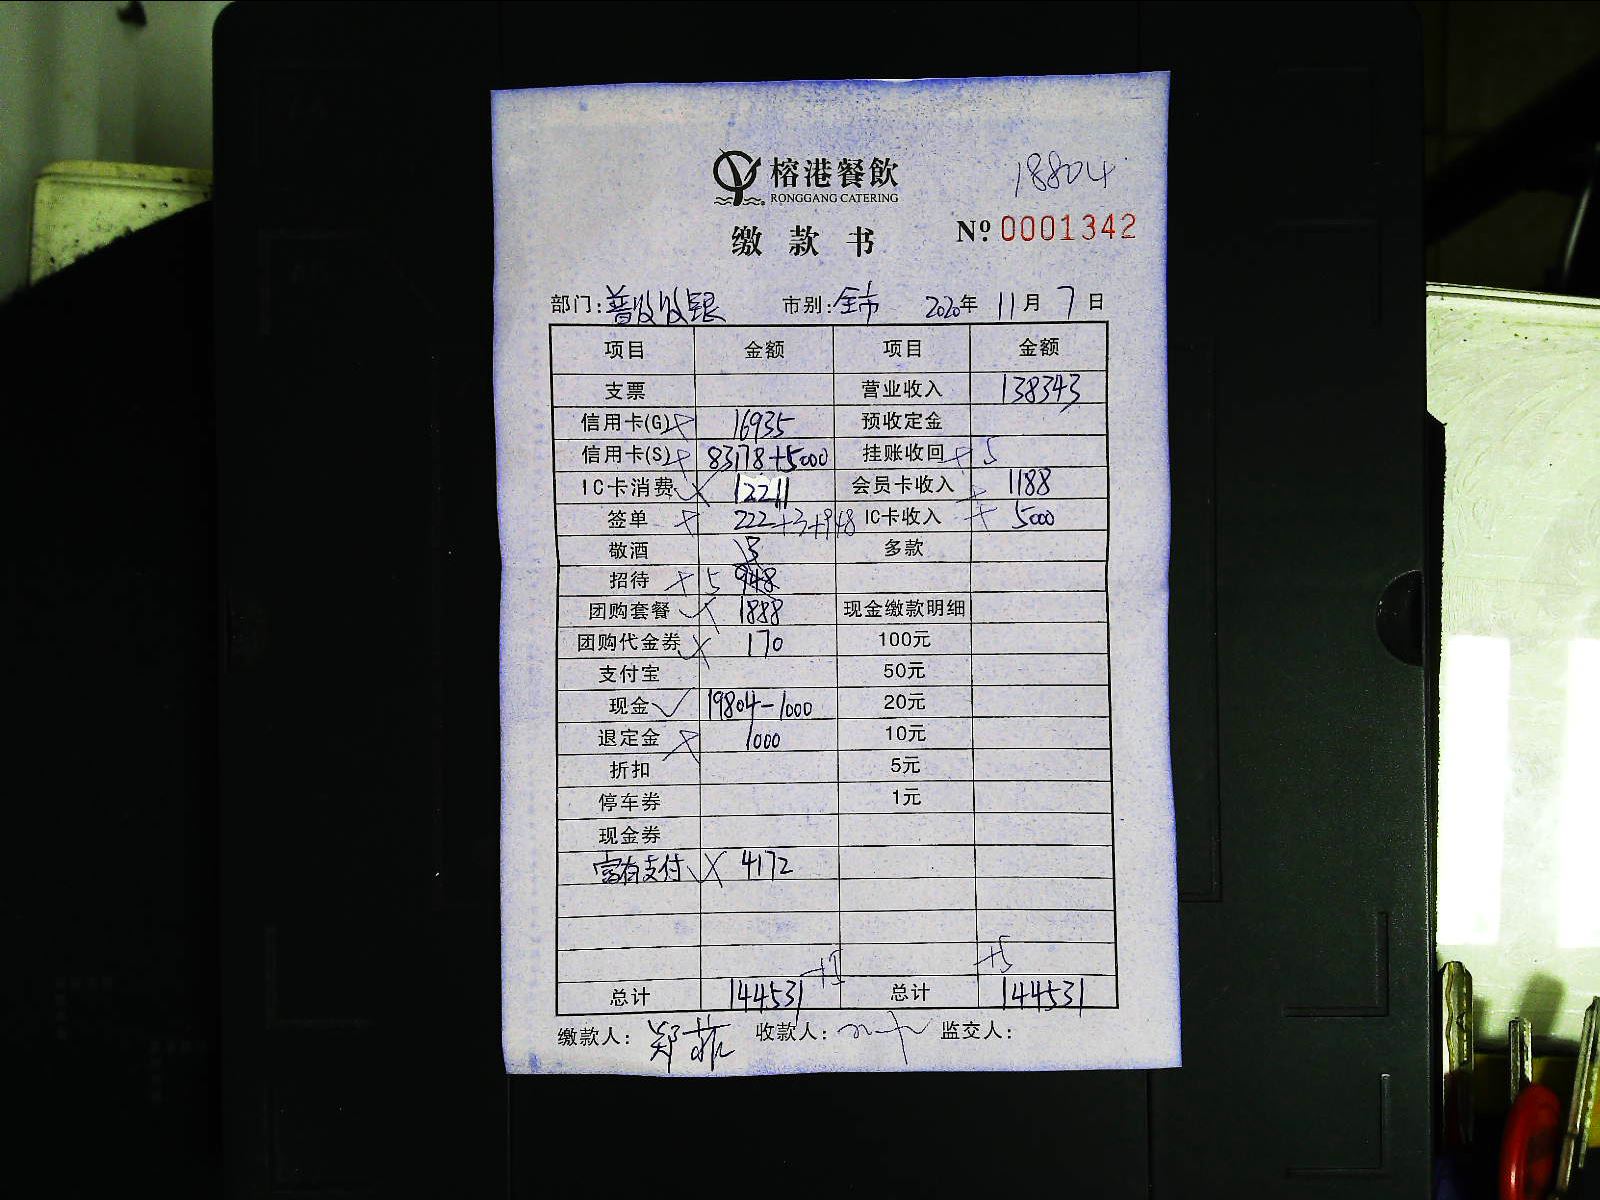 榕港餐飲
RONGGANG CATERING
18804
缴款书
Nº 0001342
部门: 市别:全市 2020年 11月 7日
项目 金额 项目 金额
支票 营业收入 138343
信用卡(G) 16935 预收定金
信用卡(S) 83178+5000 挂账收回 +5
IC卡消费 12211 会员卡收入 1188
签单 222+3+948 IC卡收入 5000
敬酒 3 多款
招待 +5 948
团购套餐 1888 现金缴款明细
团购代金券 170 100元
支付宝 50元
现金 19804-1000 20元
退定金 1000 10元
折扣 5元
停车券 1元
现金券
富有支付 4172
+5
总计 144531 总计 144531
缴款人: 收款人: 监交人: